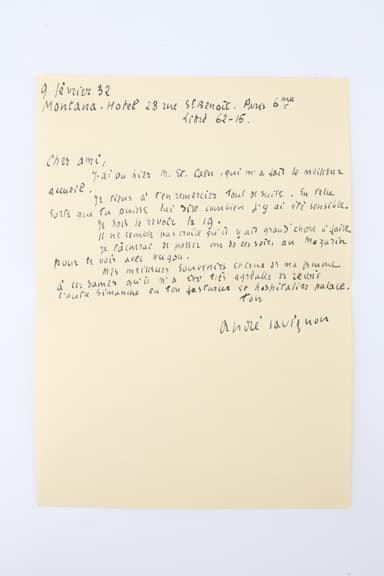 9 février 32
Montana-Hotel 28 rue St Benoît. Paris 6me
Litré 62-15.
Cher ami,
J'ai vu hier M. St. Caen, qui m'a fait le meilleur
accueil.
Je tiens à t'en remercier tout de suite. En telle
sorte que tu puisse lui dire combien j'y ai été sensible.
Je dois le revoir le 19.
Il ne semble pas croire qu'il y ait grand'chose à faire.
Je tâcherai de passer un de ces soirs au Magazin
pour te voir avec Hugon.
Mes meilleurs souvenirs et ceux de ma femme
à ces dames qu'il m'a été très agréable de revoir
l'autre dimanche en ton fastueux et hospitalier palace.
Ton
André Savignon